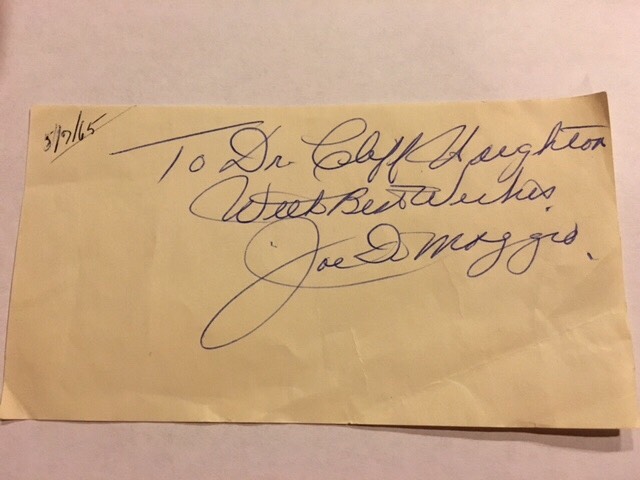 5/7/65
To Dr. Cliff Haighton
With Best Wishes.
Joe DiMaggio.